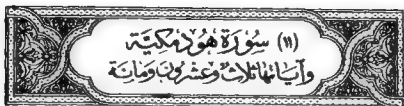 (١١) سُورَة هُود مَكيَّة
وَآيَاتهَا ثَلَاث وَعشرُونَ وَمائَة